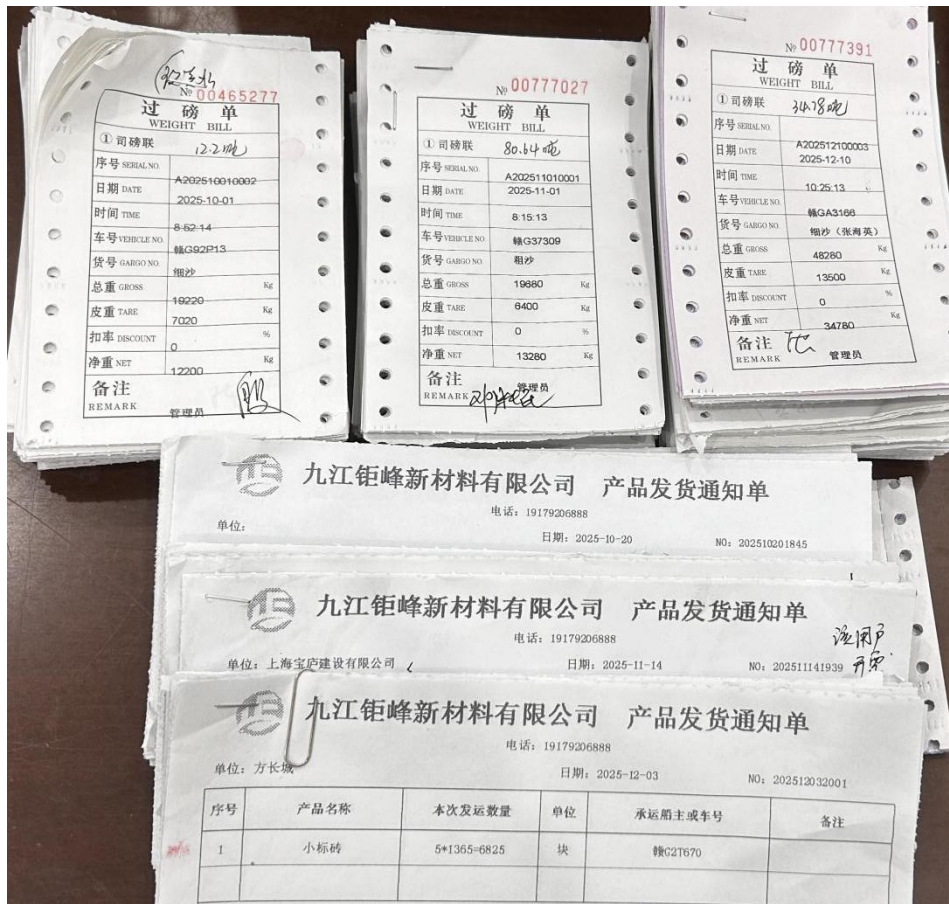 № 00465277
过 磅 单
WEIGHT BILL
①司磅联 12.2吨
序号 SERIAL NO. A202510010002
日期 DATE 2025-10-01
时间 TIME 8:52:14
车号 VEHICLE NO. 赣G92P13
货号 GARGO NO. 细沙
总重 GROSS 19220 Kg
皮重 TARE 7020 Kg
扣率 DISCOUNT 0 %
净重 NET 12200 Kg
备注
REMARK 管理员
№ 00777027
过 磅 单
WEIGHT BILL
①司磅联 80.64吨
序号 SERIAL NO. A202511010001
日期 DATE 2025-11-01
时间 TIME 8:15:13
车号 VEHICLE NO. 赣G37309
货号 GARGO NO. 粗沙
总重 GROSS 19680 Kg
皮重 TARE 6400 Kg
扣率 DISCOUNT 0 %
净重 NET 13280 Kg
备注
REMARK 管理员
№ 00777391
过 磅 单
WEIGHT BILL
①司磅联 34.78吨
序号 SERIAL NO. A202512100003
日期 DATE 2025-12-10
时间 TIME 10:25:13
车号 VEHICLE NO. 赣GA3166
货号 GARGO NO. 细沙（张海英）
总重 GROSS 48280 Kg
皮重 TARE 13500 Kg
扣率 DISCOUNT 0 %
净重 NET 34780 Kg
备注
REMARK 管理员
九江钜峰新材料有限公司 产品发货通知单
电话：19179206888
单位： 日期：2025-10-20 NO：202510201845
九江钜峰新材料有限公司 产品发货通知单
电话：19179206888
单位：上海宝庐建设有限公司 日期：2025-11-14 NO：202511141939
开票
九江钜峰新材料有限公司 产品发货通知单
电话：19179206888
单位：方长城 日期：2025-12-03 NO：202512032001
序号 产品名称 本次发运数量 单位 承运船主或车号 备注
1 小标砖 5*1365=6825 块 赣G2T670